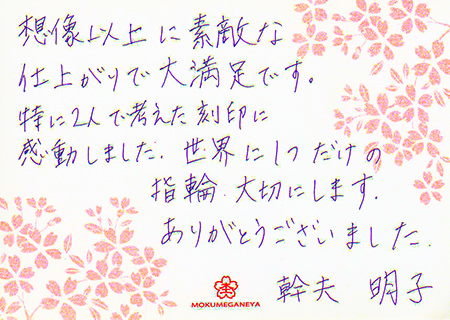 想像以上に素敵な
仕上がりで大満足です。
特に2人で考えた刻印に
感動しました. 世界に1つだけの
指輪. 大切にします.
ありがとうございました.
MOKUMEGANEYA
幹夫 明子